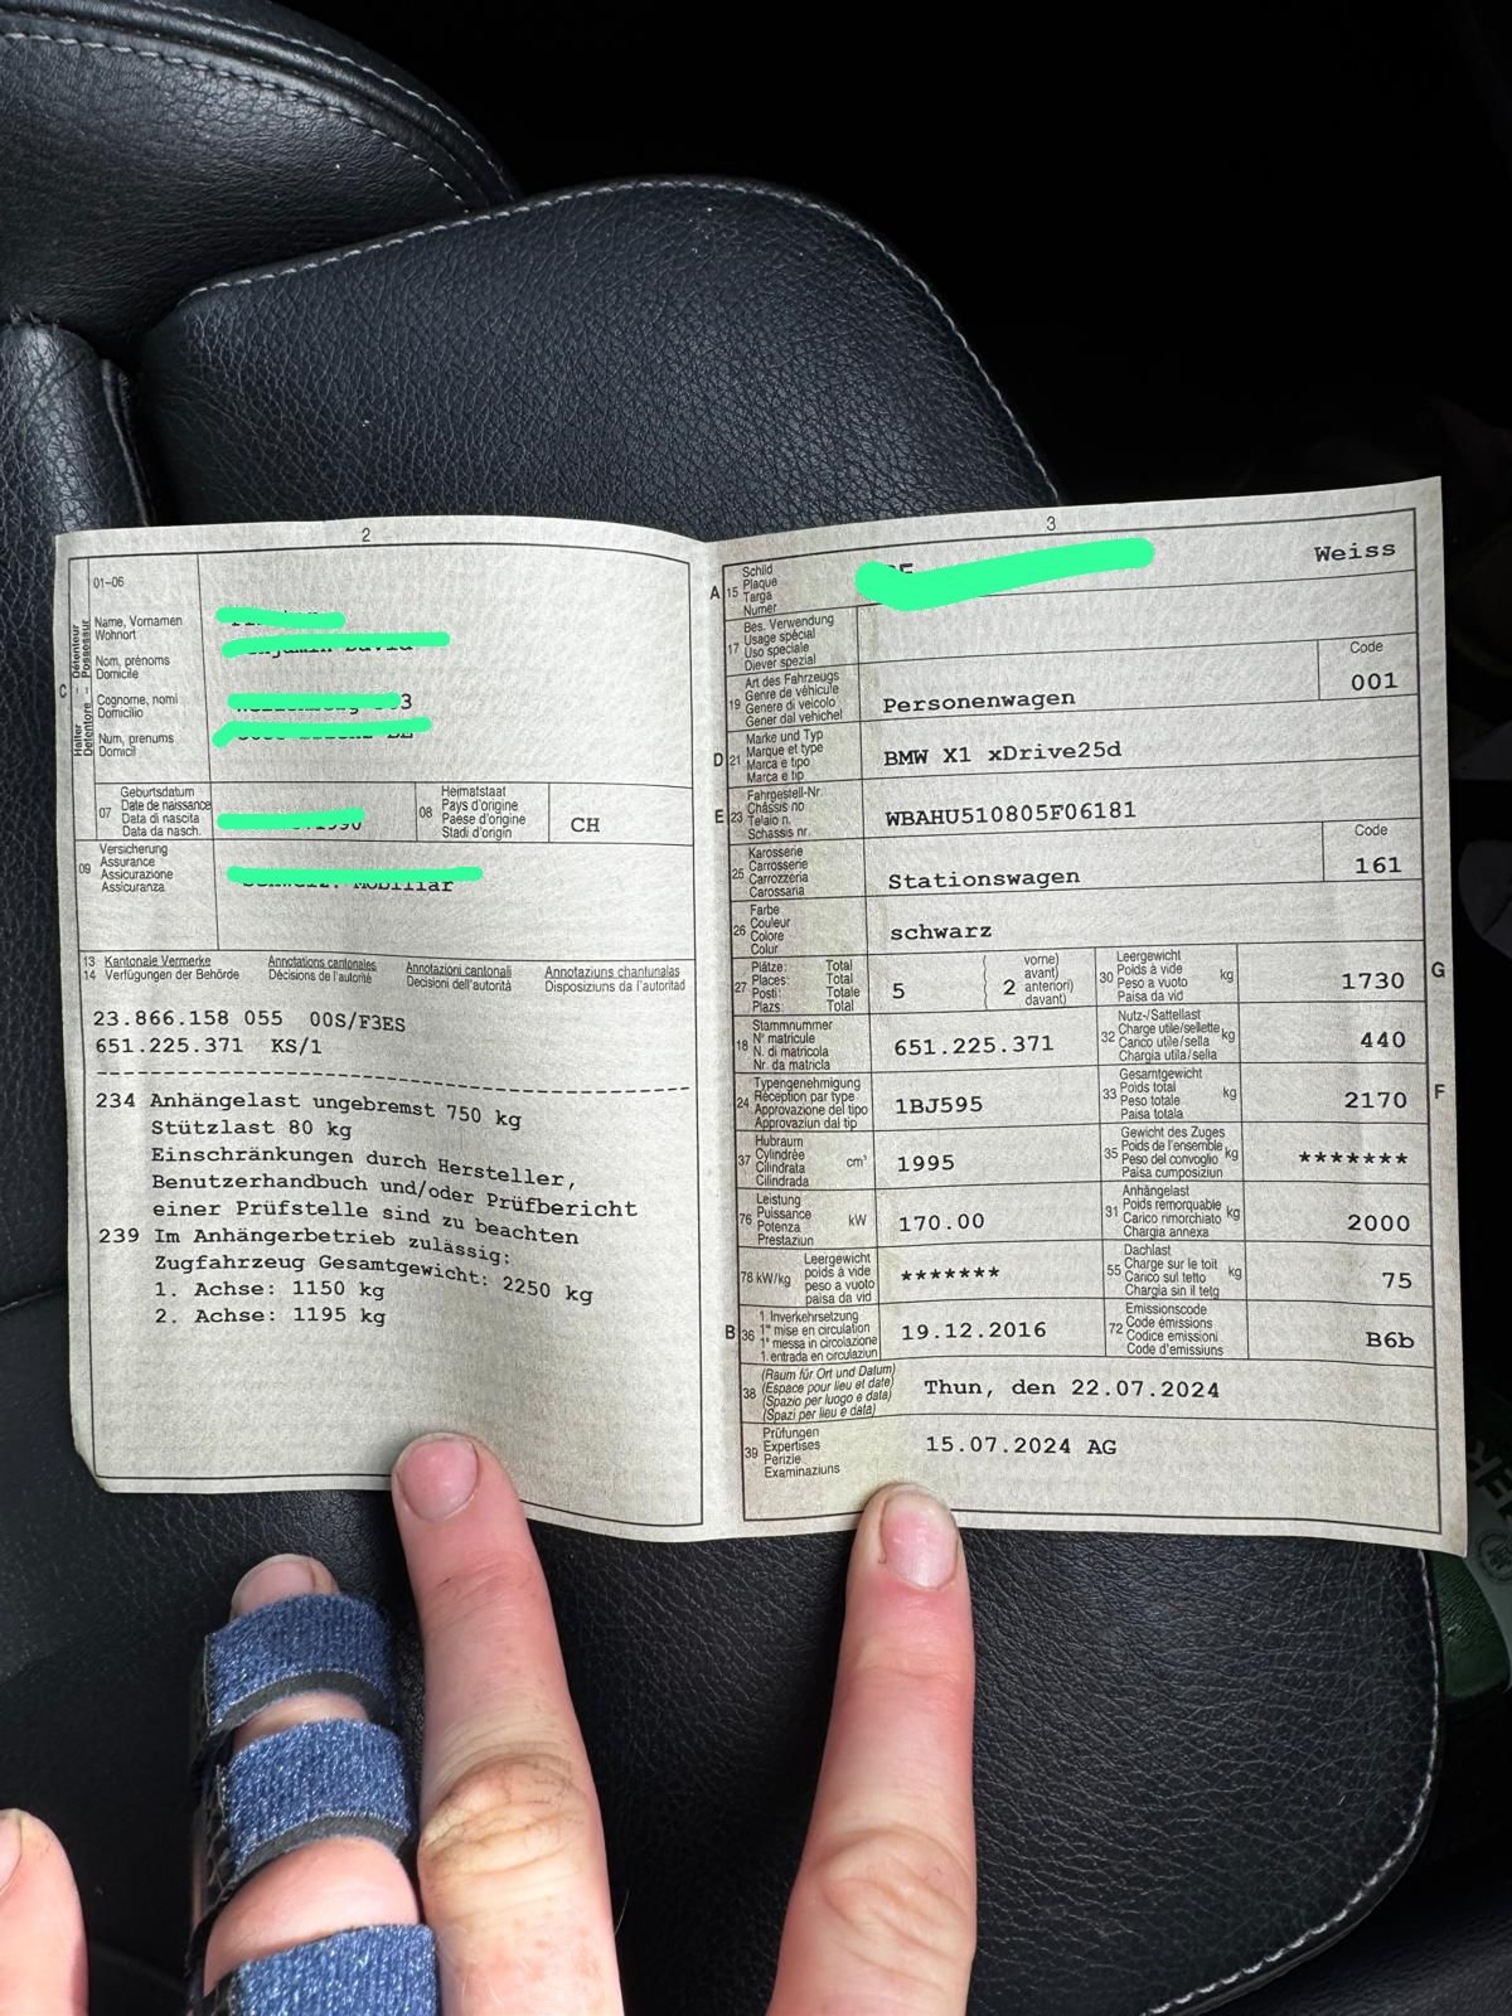 2
01-06
Halter Détenteur
Detentore Possessur
C
Name, Vornamen
Wohnort
Nom, prénoms
Domicile
Cognome, nomi
Domicilio
3
Num, prenums
Domicil
07
Geburtsdatum
Date de naissance
Data di nascita
Data da nasch.
08
Heimatstaat
Pays d'origine
Paese d'origine
Stadi d'origin
CH
09
Versicherung
Assurance
Assicurazione
Assicuranza
Mobiliar
13 Kantonale Vermerke Annotations cantonales Annotazioni cantonali Annotaziuns chantunalas
14 Verfügungen der Behörde Décisions de l'autorité Decisioni dell'autorità Disposiziuns da l'autoritad
23.866.158 055 00S/F3ES
651.225.371 KS/1
234 Anhängelast ungebremst 750 kg
Stützlast 80 kg
Einschränkungen durch Hersteller,
Benutzerhandbuch und/oder Prüfbericht
einer Prüfstelle sind zu beachten
239 Im Anhängerbetrieb zulässig:
Zugfahrzeug Gesamtgewicht: 2250 kg
1. Achse: 1150 kg
2. Achse: 1195 kg
3
A 15
Schild
Plaque
Targa
Numer
Weiss
17
Bes. Verwendung
Usage spécial
Uso speciale
Diever spezial
19
Art des Fahrzeugs
Genre de véhicule
Genere di veicolo
Gener dal vehichel
Personenwagen
Code
001
D 21
Marke und Typ
Marque et type
Marca e tipo
Marca e tip
BMW X1 xDrive25d
E 23
Fahrgestell-Nr.
Châssis no
Telaio n.
Schassis nr.
WBAHU510805F06181
25
Karosserie
Carrosserie
Carrozzeria
Carossaria
Stationswagen
Code
161
26
Farbe
Couleur
Colore
Colur
schwarz
27
Plätze: Total
Places: Total
Posti: Totale
Plazs: Total
5
2
vorne)
avant)
anteriori)
davant)
30
Leergewicht
Poids à vide
Peso a vuoto
Paisa da vid
kg
1730
G
18
Stammnummer
N° matricule
N. di matricola
Nr. da matricla
651.225.371
32
Nutz-/Sattellast
Charge utile/sellette
Carico utile/sella
Chargia utila/sella
kg
440
24
Typengenehmigung
Réception par type
Approvazione del tipo
Approvaziun dal tip
1BJ595
33
Gesamtgewicht
Poids total
Peso totale
Paisa totala
kg
2170
F
37
Hubraum
Cylindrée
Cilindrata
Cilindrada
cm³
1995
35
Gewicht des Zuges
Poids de l'ensemble
Peso del convoglio
Paisa cumposiziun
kg
*******
76
Leistung
Puissance
Potenza
Prestaziun
kW
170.00
31
Anhängelast
Poids remorquable
Carico rimorchiato
Chargia annexa
kg
2000
78 kW/kg
Leergewicht
poids à vide
peso a vuoto
paisa da vid
*******
55
Dachlast
Charge sur le toit
Carico sul tetto
Chargia sin il tetg
kg
75
B 36
1. Inverkehrsetzung
1re mise en circulation
1a messa in circolazione
1. entrada en circulaziun
19.12.2016
72
Emissionscode
Code émissions
Codice emissioni
Code d'emissiuns
B6b
38
(Raum für Ort und Datum)
(Espace pour lieu et date)
(Spazio per luogo e data)
(Spazi per lieu e data)
Thun, den 22.07.2024
39
Prüfungen
Expertises
Perizie
Examinaziuns
15.07.2024 AG